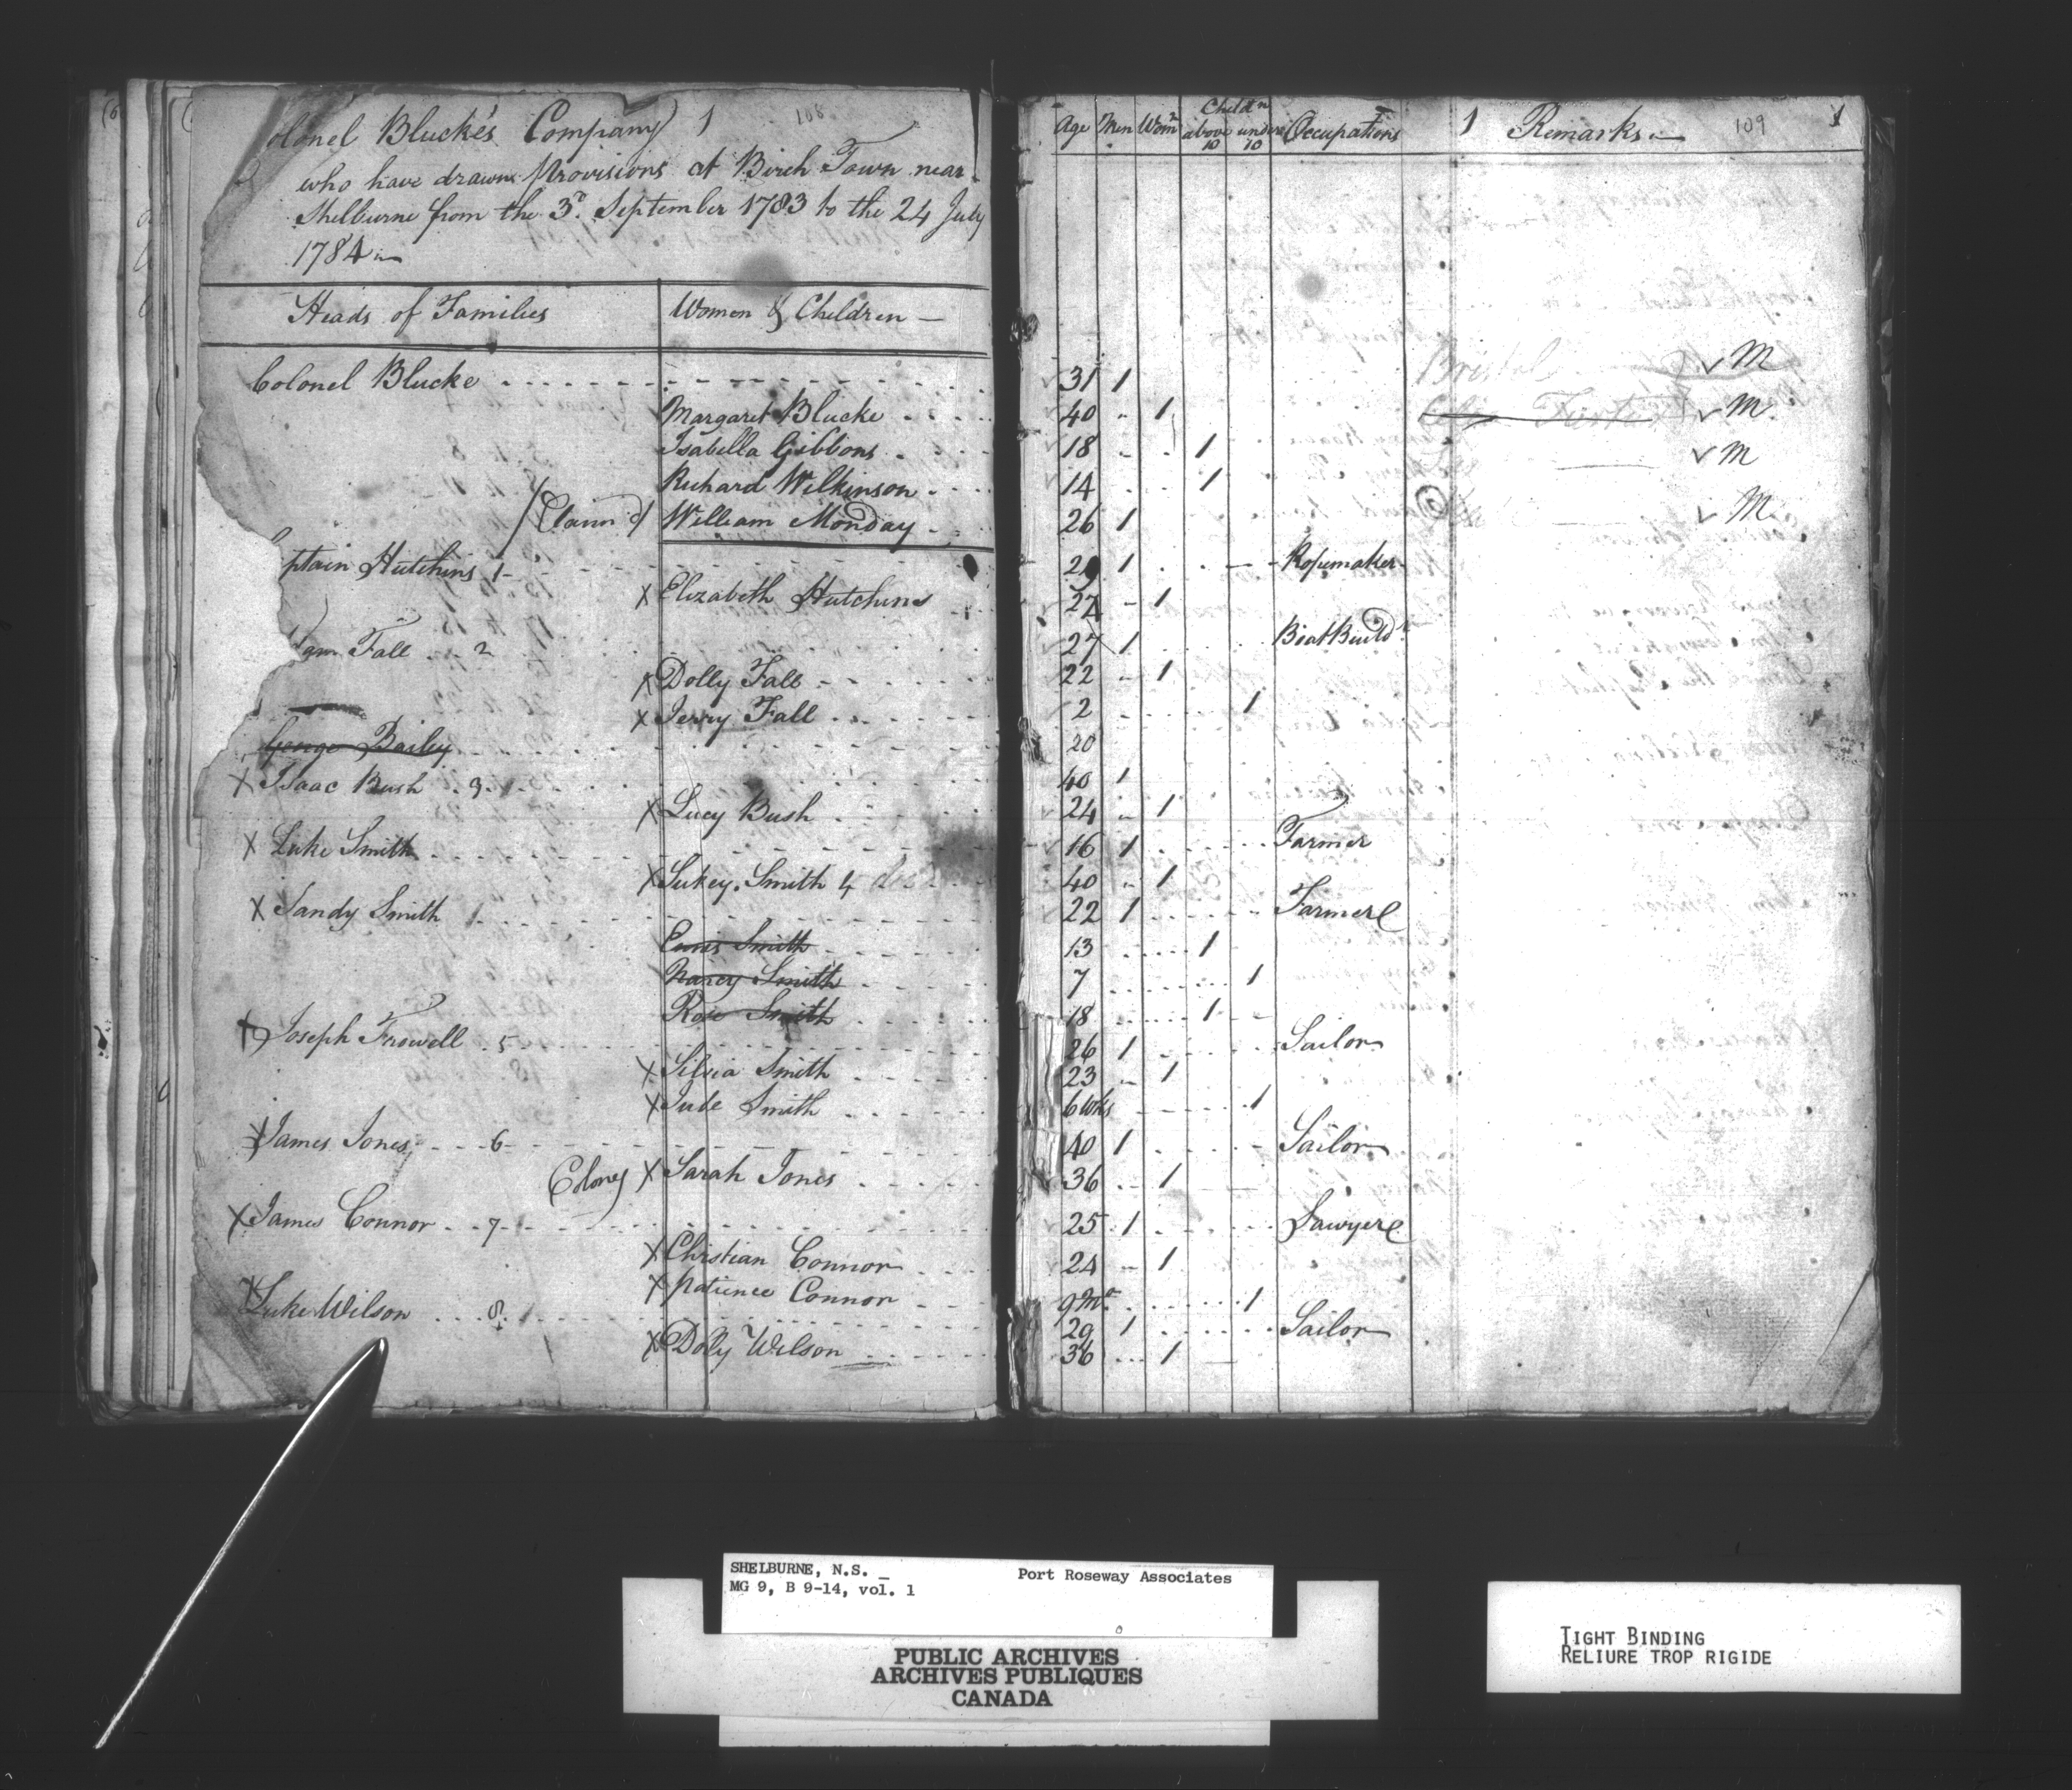 olonel Blucke's Company 1 108
who have drawn Provisions at Birch Town near
Shelburne from the 3d. September 1783 to the 24 July
1784
Heads of Families Women & Children
Colonel Blucke
Margaret Blucke
Isabella Gibbons
Richard Wilkinson
William Monday
ptain Hutchins 1
X Elizabeth Hutchins
am Fall 2
X Dolly Fall
X Jerry Fall
George Bailey
X Isaac Bush 3
X Lucy Bush
X Luke Smith
X Sukey Smith 4
X Sandy Smith
Smith
Nancy Smith
Rose Smith
X Joseph Frowell 5
X Silvia Smith
X Jude Smith
X James Jones 6
X Sarah Jones
X James Connor 7
X Christian Connor
X Patience Connor
X Luke Wilson 8
X Dolly Wilson
Age Men Womn Childn above 10 under 10 Occupations 1 Remarks 109 1
31 1 Bristol ✓ M
40 1 ✓ M
18 1 ✓ M
14 1
26 1 ✓ M
1 Ropemaker
27 1
27 1 BoatBuildr
22 1
2 1
20
40 1
24 1
16 1 Farmer
40 1
22 1 Farmer
13 1
7 1
18 1
26 1 Sailor
23 1
6 Wks 1
40 1 Sailor
36 1
25 1 Sawyer
24 1
9 Ms 1
29 1 Sailor
36 1
SHELBURNE, N.S. Port Roseway Associates
MG 9, B 9-14, vol. 1
PUBLIC ARCHIVES
ARCHIVES PUBLIQUES
CANADA
TIGHT BINDING
RELIURE TROP RIGIDE